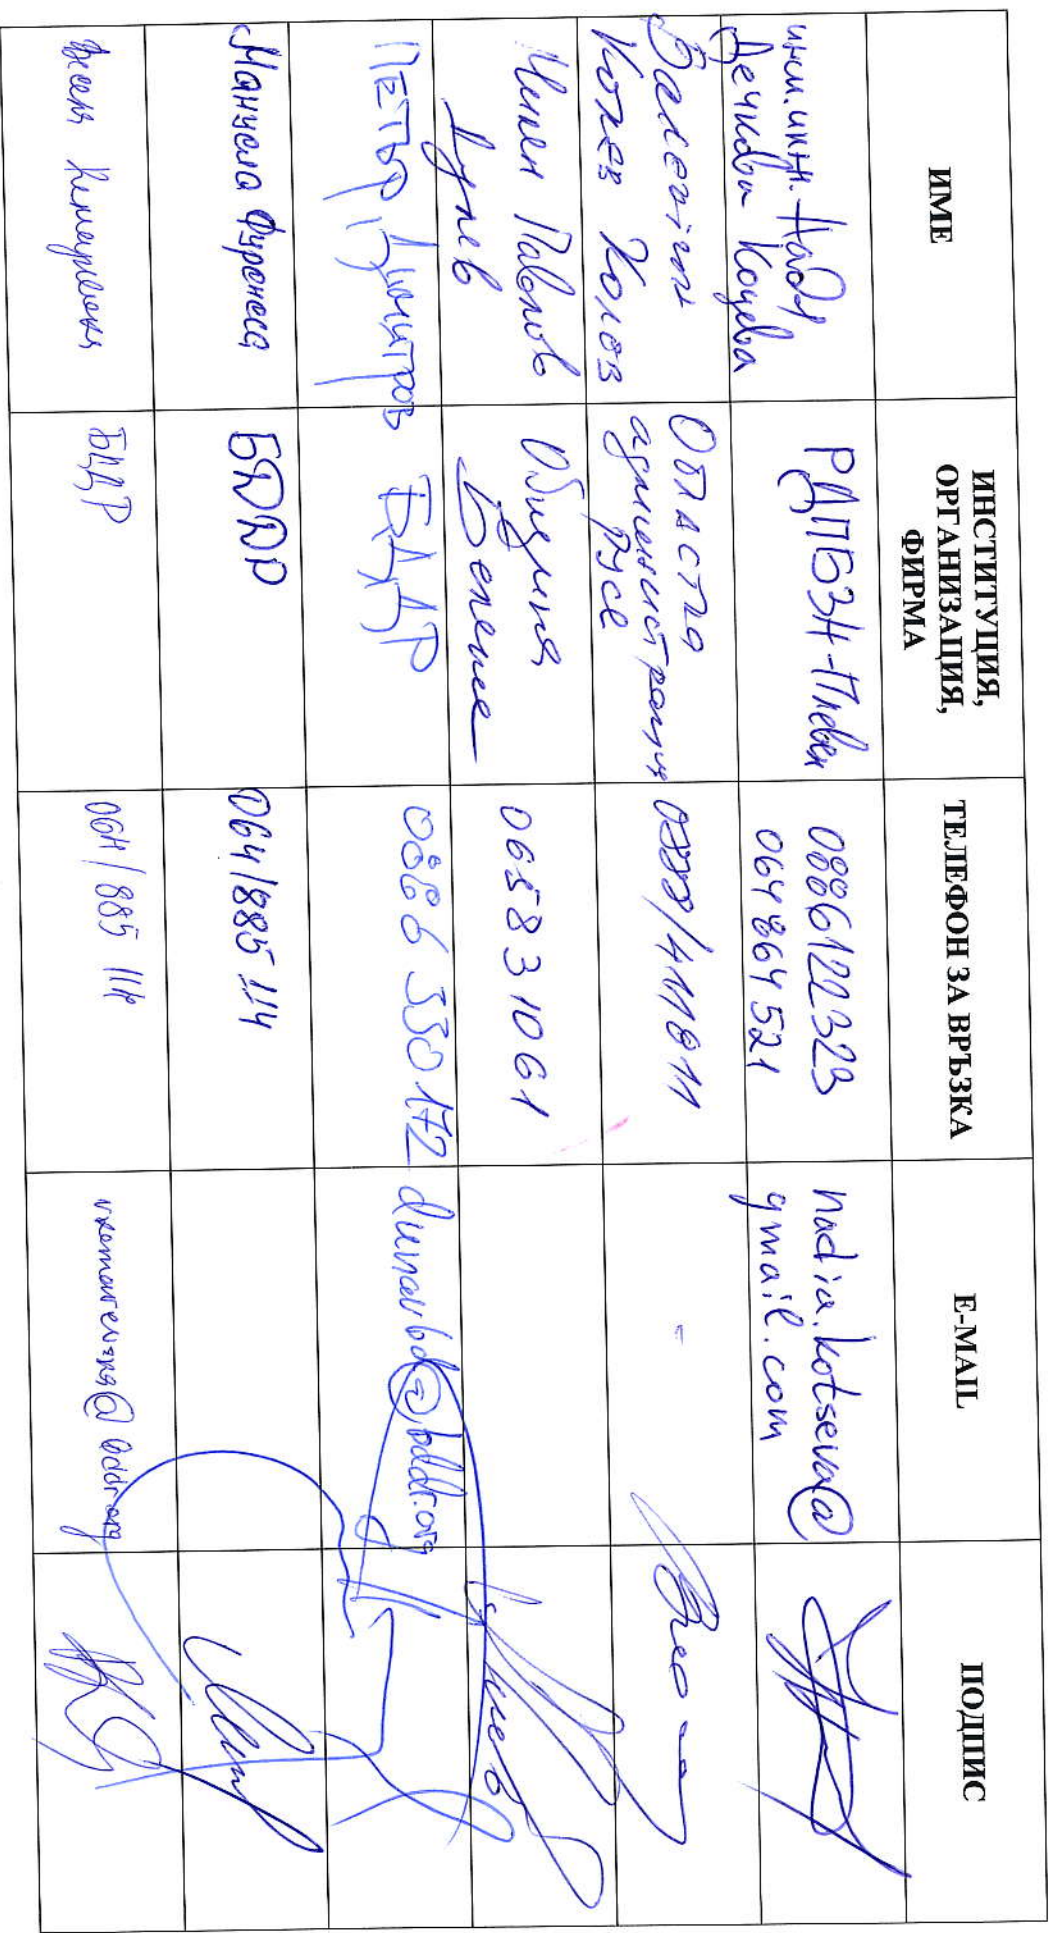 ИМЕ
ИНСТИТУЦИЯ,
ОРГАНИЗАЦИЯ,
ФИРМА
ТЕЛЕФОН ЗА ВРЪЗКА
E-MAIL
ПОДПИС
инж. Надя
Дечкова Коцева
РДПБЗН-Плевен
0886122323
064 864 521
nadia.kotseva@
gmail.com
Валентин
Колев Колев
Областна
администрация
Русе
0888/411811
-
Павлов
Дулев
Община
Белене
0658 31061
ПЕТЬР Димитров
БДДР
0886 330 172
dunavbd@bddr.org
Мануела
БДДР
064/885 114
БДДР
064/885 114
@bddr.org